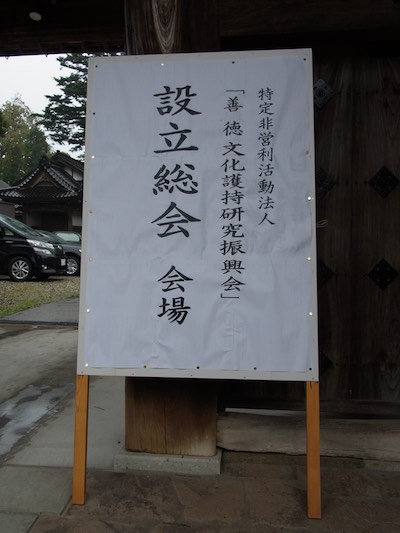 特定非営利活動法人
「善徳文化護持研究振興会」
設立総会 会場